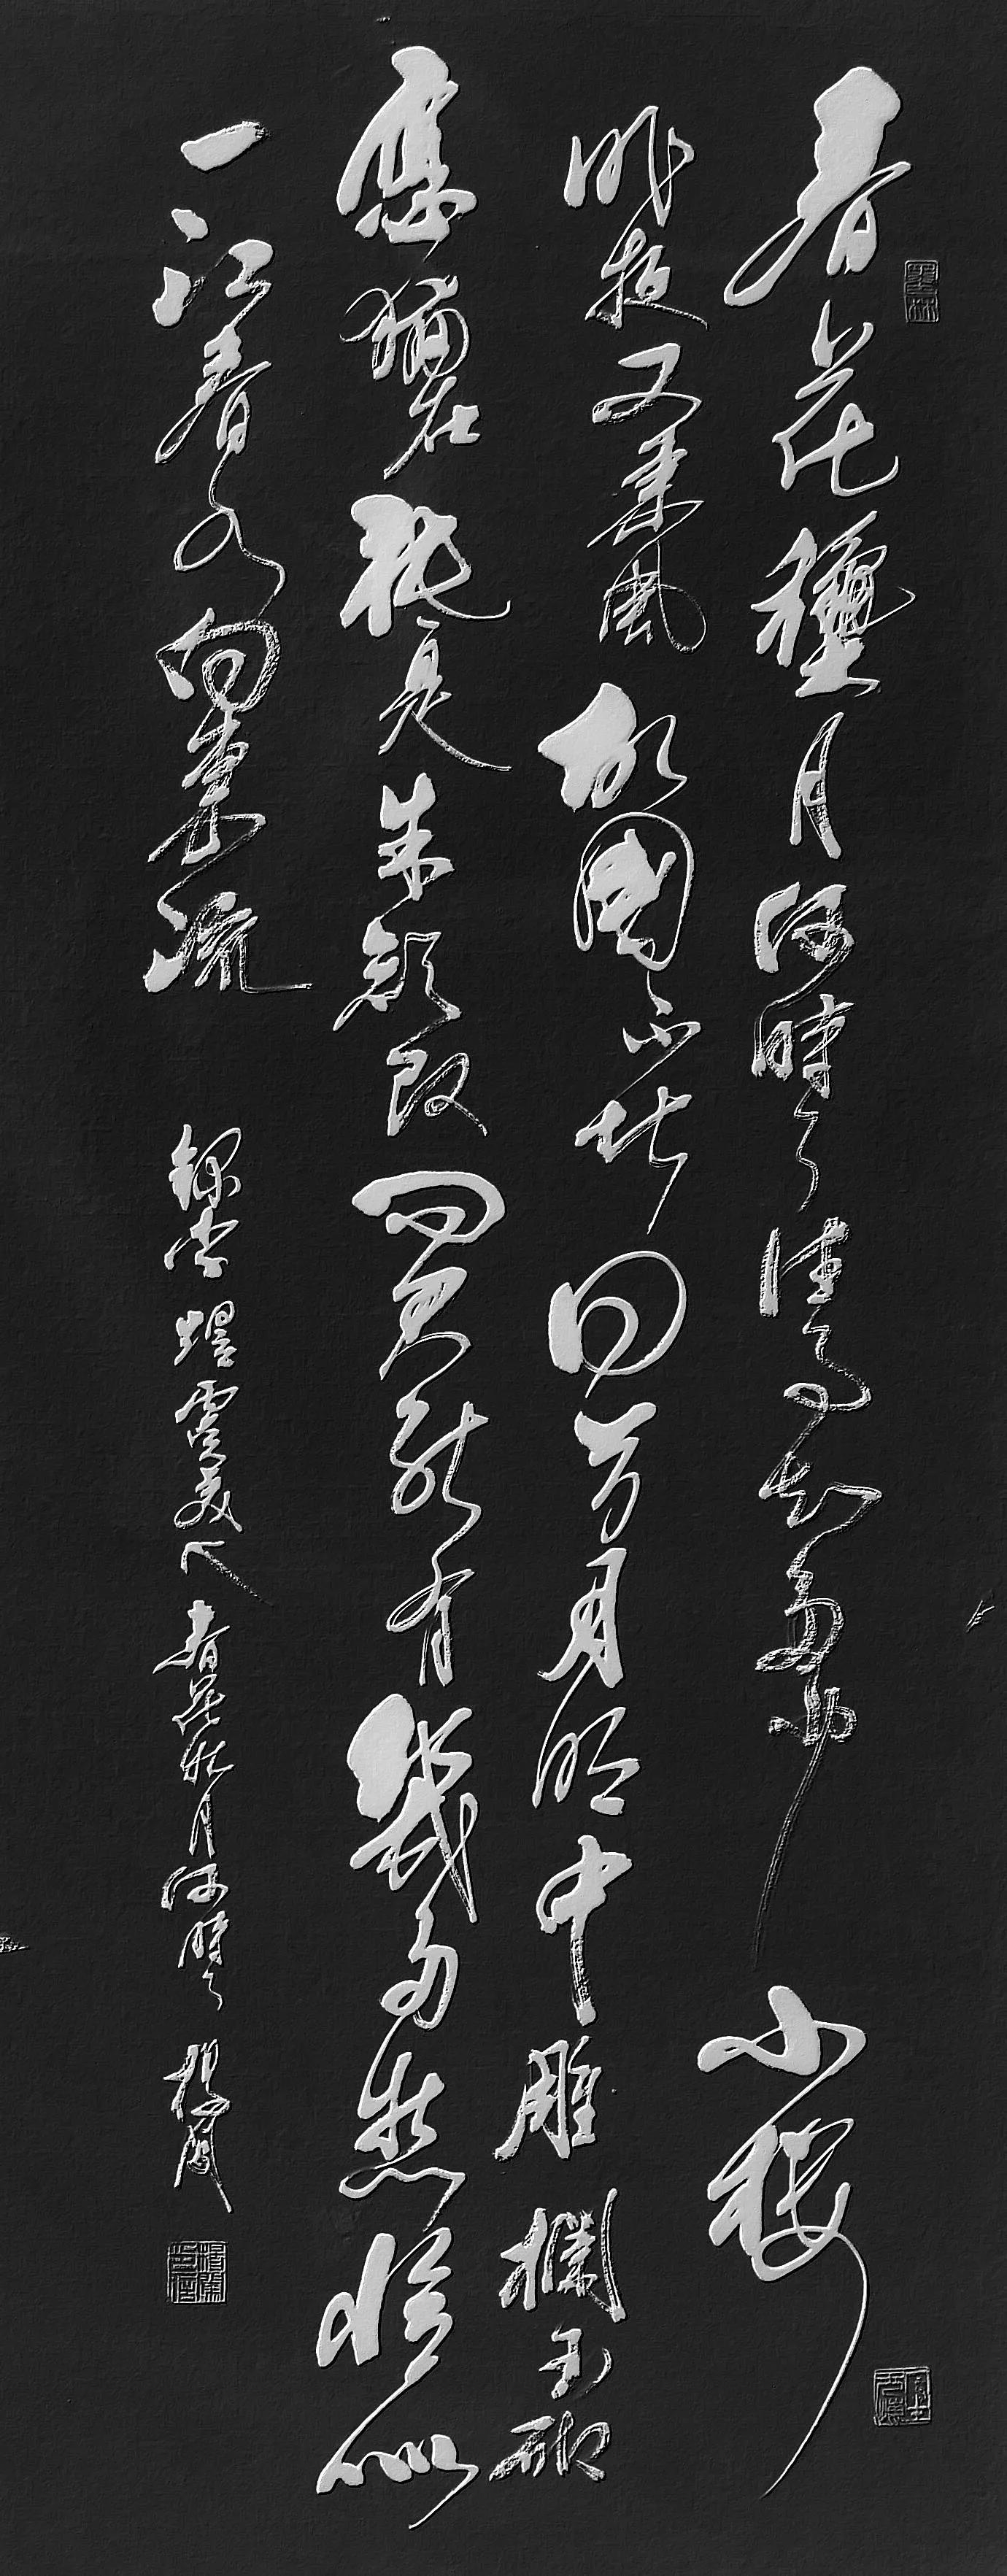 春花龝月何時了往事知多少小樓
昨夜又東風故國不堪回首月明中雕欄玉砌
應猶在祇是朱顏改問君能有幾多愁恰似
一江春水向東流 錄李煜虞美人春花秋月何時了 楊